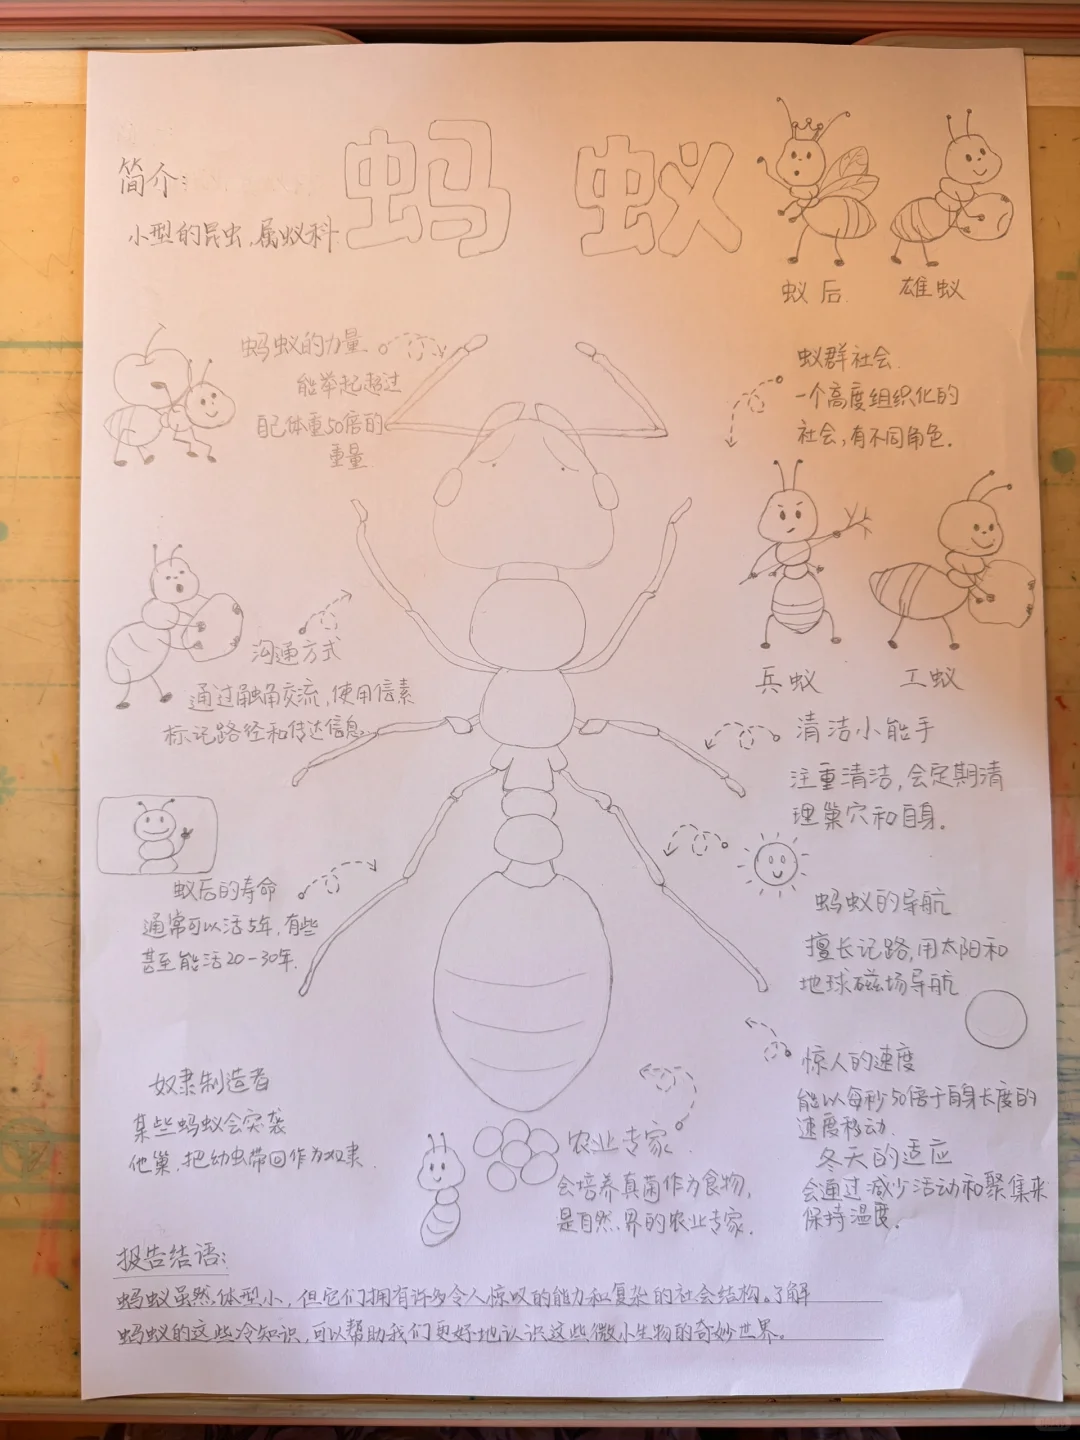 蚂蚁
简介:
小型的昆虫,属蚁科
蚁后
雄蚁
蚂蚁的力量
能举起超过
自己体重50倍的
重量
蚁群社会
一个高度组织化的
社会,有不同角色.
兵蚁
工蚁
沟通方式
通过触角交流,使用信素
标记路径和传达信息
清洁小能手
注重清洁,会定期清
理巢穴和自身.
蚁后的寿命
通常可以活5年,有些
甚至能活20-30年.
蚂蚁的导航
擅长记路,用太阳和
地球磁场导航
奴隶制造者
某些蚂蚁会突袭
他巢,把幼虫带回作为奴隶
农业专家
会培养真菌作为食物,
是自然界的农业专家.
惊人的速度
能以每秒50倍于自身长度的
速度移动.
冬天的适应
会通过减少活动和聚集来
保持温度.
报告结语:
蚂蚁虽然体型小,但它们拥有许多令人惊叹的能力和复杂的社会结构。了解
蚂蚁的这些冷知识,可以帮助我们更好地认识这些微小生物的奇妙世界。